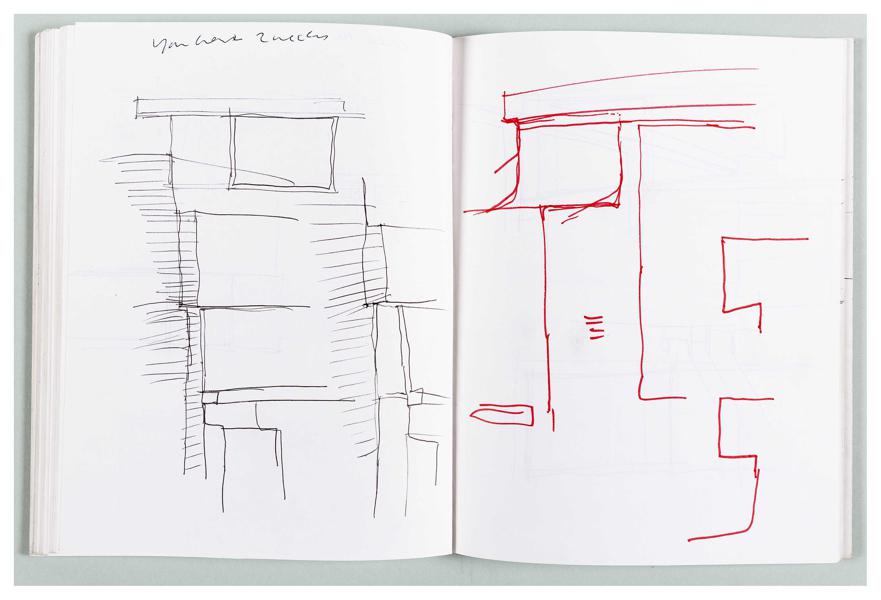 You have 2 weeks